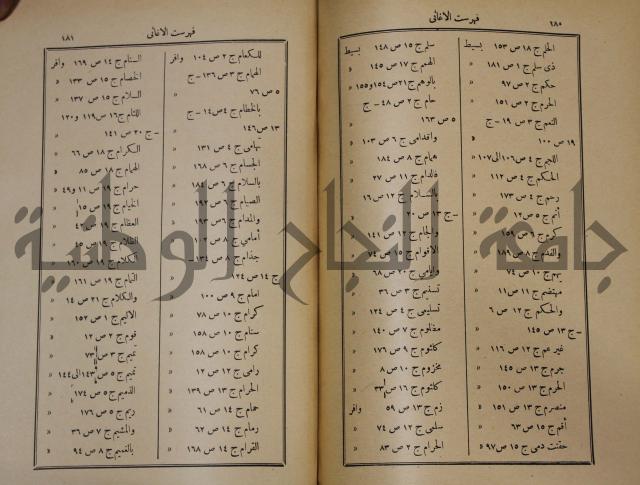 فهرست الاغانى
٦٨٠
الحلم ج ١٨ ص ١٥٣ بسيط
ذى سلم ج ١ ص ١٨١ »
حكم ج ٢ ص ٩٧ »
الحرم ج ٢ ص ١٥١ »
النعم ج ٣ ص ١٩ – ج
١٩ ص ١٠٠ »
اللجم ج ٤ ص ١٠٦ الى ١٠٧ »
الحكم ج ٤ ص ١١٢ »
رسم ج ٤ ص ١٧٣ »
أثم ج ٥ ص ١٢ »
كرم ج ٩ ص ١٥٩
والقدم ج ٨ ص ١٨٩
بهم ج ١٠ ص ٧٤
مهتضم ج ١١ ص ١١
والحكم ج ١٢ ص ٦
– ج ١٣ ص ١٤٥ »
غير عم ج ١٢ ص ١١٦ »
جرم ج ١٣ ص ١٤٥ »
الحرم ج ١٣ ص ١٥٠ »
منصرم ج ١٣ ص ١٥١ »
أقم ج ١٥ ص ٦٣ »
حقنت دمى ج ١٥ ص ٩٧ »
سلم ج ١٥ ص ١٤٨ بسيط
الهمم ج ١٧ ص ١٤٥ »
بالوهم ج ٢١ ص ١٥٤ و ١٥٥ »
حام ج ٢ ص ٤٨ – ج
٥ ص ١٦٣ »
واقدامى ج ٦ ص ١٠٣ »
همام ج ٨ ص ١٨٤ »
فالدام ج ١١ ص ٢٧ »
بالسلام ج ١٢ ص ١٦
– ج ١٣ ص ٢٠
والجام ج ١٢ ص ١٤١
الاقوام ج ١٥ ص ٧٤
واللامى ج ٢٠ ص ٦٨
تسنيم ج ٣ ص ٣٦ »
تسليمى ج ٤ ص ١٢٤ »
مظلوم ج ٧ ص ١٤٠ »
كلثوم ج ٩ ص ١٧٦ »
مخزوم ج ١٠ ص ٨ »
كلثوم ج ١٦ ص ٣٣ »
زم ج ١٣ ص ٥٩ وافر
سلمى ج ١٢ ص ٧٤ »
الحرام ج ٢ ص ٨٣ »
فهرست الاغانى
٦٨١
للكعام ج ٢ ص ١٠٤ وافر
الهام ج ٣ ص ١٣٦ – ج
٥ ص ٧٦ »
بالخطام ج ٤ ص ١٤ – ج
١٣ ص ١٤٦ »
تهامى ج ٤ ص ١٣١ »
الجسام ج ٦ ص ١٦٨ »
بالسلام ج ٦ ص ١٨٤ »
الصيام ج ٦ ص ١٩٢
والمدام ج ٦ ص ١٩٣
أمامى ج ٨ ص ١٠٢
جذام ج ٨ ص ١٣٤ –
ج ١٤ ص ١٢٤
امام ج ٩ ص ١٠٠ »
كرام ج ١٠ ص ٧٨ »
سنام ج ١٠ ص ١٥٨ »
كرام ج ١٠ ص ١٥٨ »
رامى ج ١٢ ص ١٢ »
الحرام ج ١٣ ص ١٣٩ »
حمام ج ١٤ ص ٦١ »
رمام ج ١٤ ص ٦٢ »
القرام ج ١٤ ص ١٦٨ »
السنام ج ١٤ ص ١٦٩ وافر
الخصام ج ١٥ ص ١٣٣ »
السلام ج ١٥ ص ١٣٧ »
اللئام ج ١٦ ص ١١٩ و ١٢٠
– ج ٢٠ ص ١٤١ »
الكرام ج ١٨ ص ٦٦ »
الهمام ج ١٨ ص ٨٥ »
حرام ج ١٩ ص ١١ و ٤٩ »
الخيام ج ١٩ ص ١٥
العظام ج ١٩ ص ٤٢
الظلام ج ١٩ ص ٤٥
الكلام ج ١٩ ص ١٦٠
النيام ج ١٩ ص ١٦١ »
والكلام ج ٢١ ص ١٤ »
الاليم ج ١ ص ١٥٢ »
قوم ج ٢ ص ١٢ »
تميم ج ٣ ص ٧٣ »
تميم ج ٥ ص ١٤٣ الى ١٤٤ »
الذميم ج ٥ ص ١٧٤ »
ريم ج ٥ ص ١٧٦ »
والمشيم ج ٧ ص ٣٦ »
بالغميم ج ٨ ص ٩٤ »
جامعة النجاح الوطنية